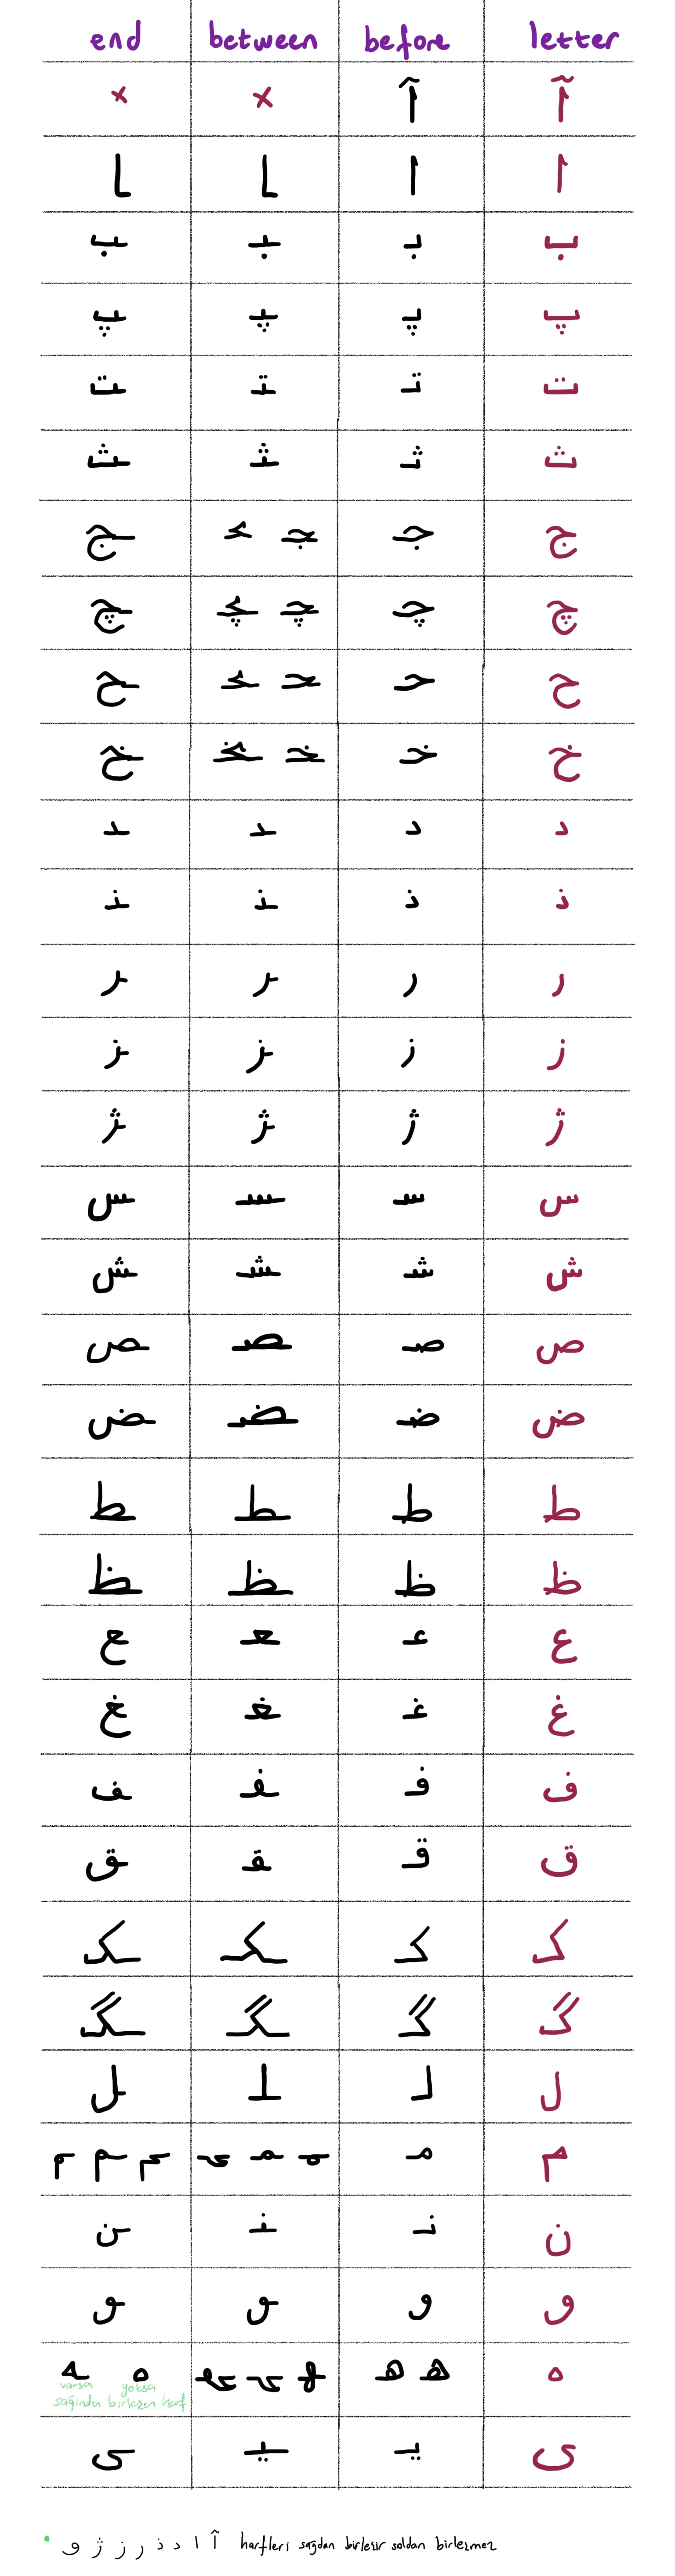 end between before letter
× × آ آ
ـا ـا ا ا
ـب ـبـ بـ ب
ـپ ـپـ پـ پ
ـت ـتـ تـ ت
ـث ـثـ ثـ ث
ـج ـجـ ـجـ جـ ج
ـچ ـچـ ـچـ چـ چ
ـح ـحـ ـحـ حـ ح
ـخ ـخـ ـخـ خـ خ
ـد ـد د د
ـذ ـذ ذ ذ
ـر ـر ر ر
ـز ـز ز ز
ـژ ـژ ژ ژ
ـس ـسـ سـ س
ـش ـشـ شـ ش
ـص ـصـ صـ ص
ـض ـضـ ضـ ض
ـط ـطـ طـ ط
ـظ ـظـ ظـ ظ
ـع ـعـ عـ ع
ـغ ـغـ غـ غ
ـف ـفـ فـ ف
ـق ـقـ قـ ق
ـک ـکـ کـ ک
ـگ ـگـ گـ گ
ـل ـلـ لـ ل
ـم ـم ـم ـمـ ـمـ ـمـ مـ م
ـن ـنـ نـ ن
ـو ـو و و
ـه ه ـهـ ـهـ ـهـ هـ هـ ه
varsa yoksa
sağında birleşen harf
ـی ـیـ یـ ی
آ ا د ذ ر ز ژ و harfleri sağdan birleşir soldan birleşmez